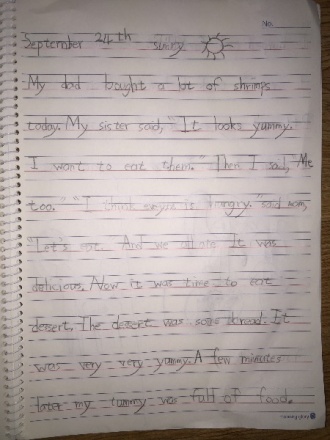 No.
September 24th sunny
My dad bought a lot of shrimps
today. My sister said, "It looks yummy.
I want to eat them." Then I said, "Me
too." "I think is hungry." said mom,
"Let's eat. And we all ate It was
delicious. Now it was time to eat
desert. The desert was some bread. It
was very very yummy. A few minutes
later my tummy was full of food.
morning glory